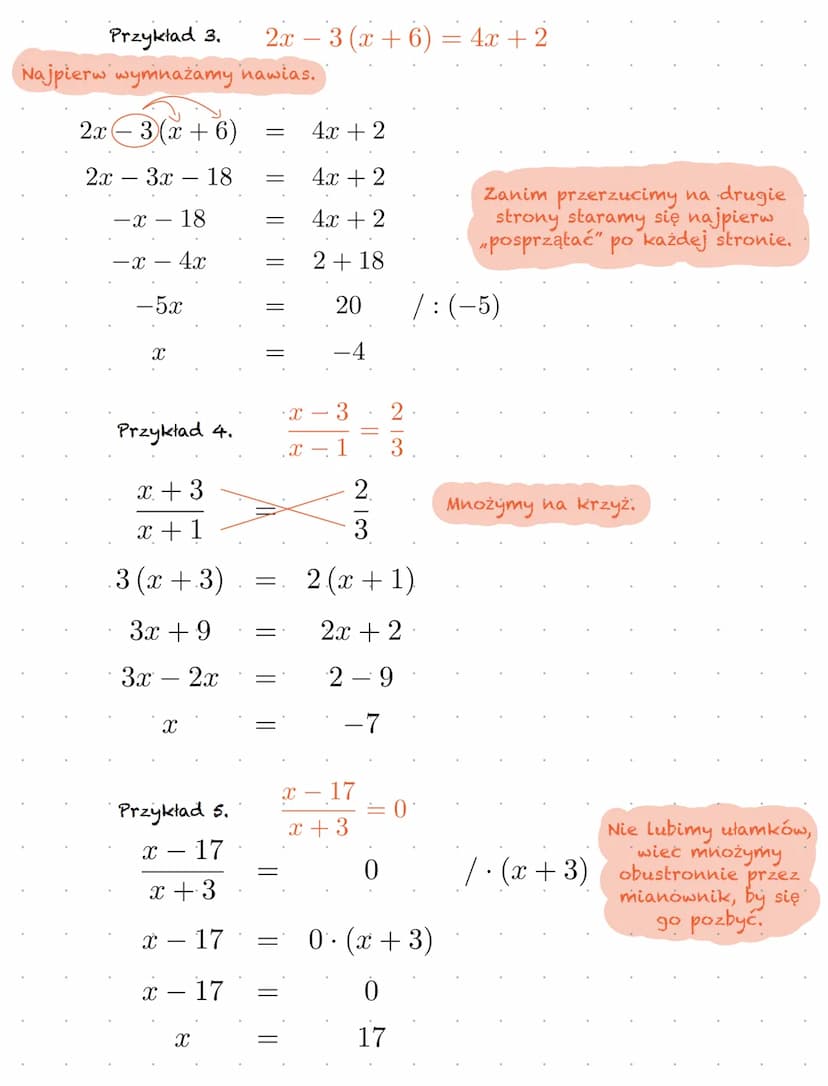 Przykład 3. 2x − 3(x + 6) = 4x + 2
Najpierw wymnażamy nawias.
2x − 3(x + 6) = 4x + 2
2x − 3x − 18 = 4x + 2
−x − 18 = 4x + 2
−x − 4x = 2 + 18
−5x = 20 / : (−5)
x = −4
Zanim przerzucimy na drugie
strony staramy się najpierw
„posprzątać” po każdej stronie.
Przykład 4. \frac{x − 3}{x − 1} = \frac{2}{3}
\frac{x + 3}{x + 1} = \frac{2}{3}
Mnożymy na krzyż.
3(x + 3) = 2(x + 1)
3x + 9 = 2x + 2
3x − 2x = 2 − 9
x = −7
Przykład 5. \frac{x − 17}{x + 3} = 0
\frac{x − 17}{x + 3} = 0 / · (x + 3)
Nie lubimy ułamków,
wieć mnożymy
obustronnie przez
mianownik, by się
go pozbyć.
x − 17 = 0 · (x + 3)
x − 17 = 0
x = 17